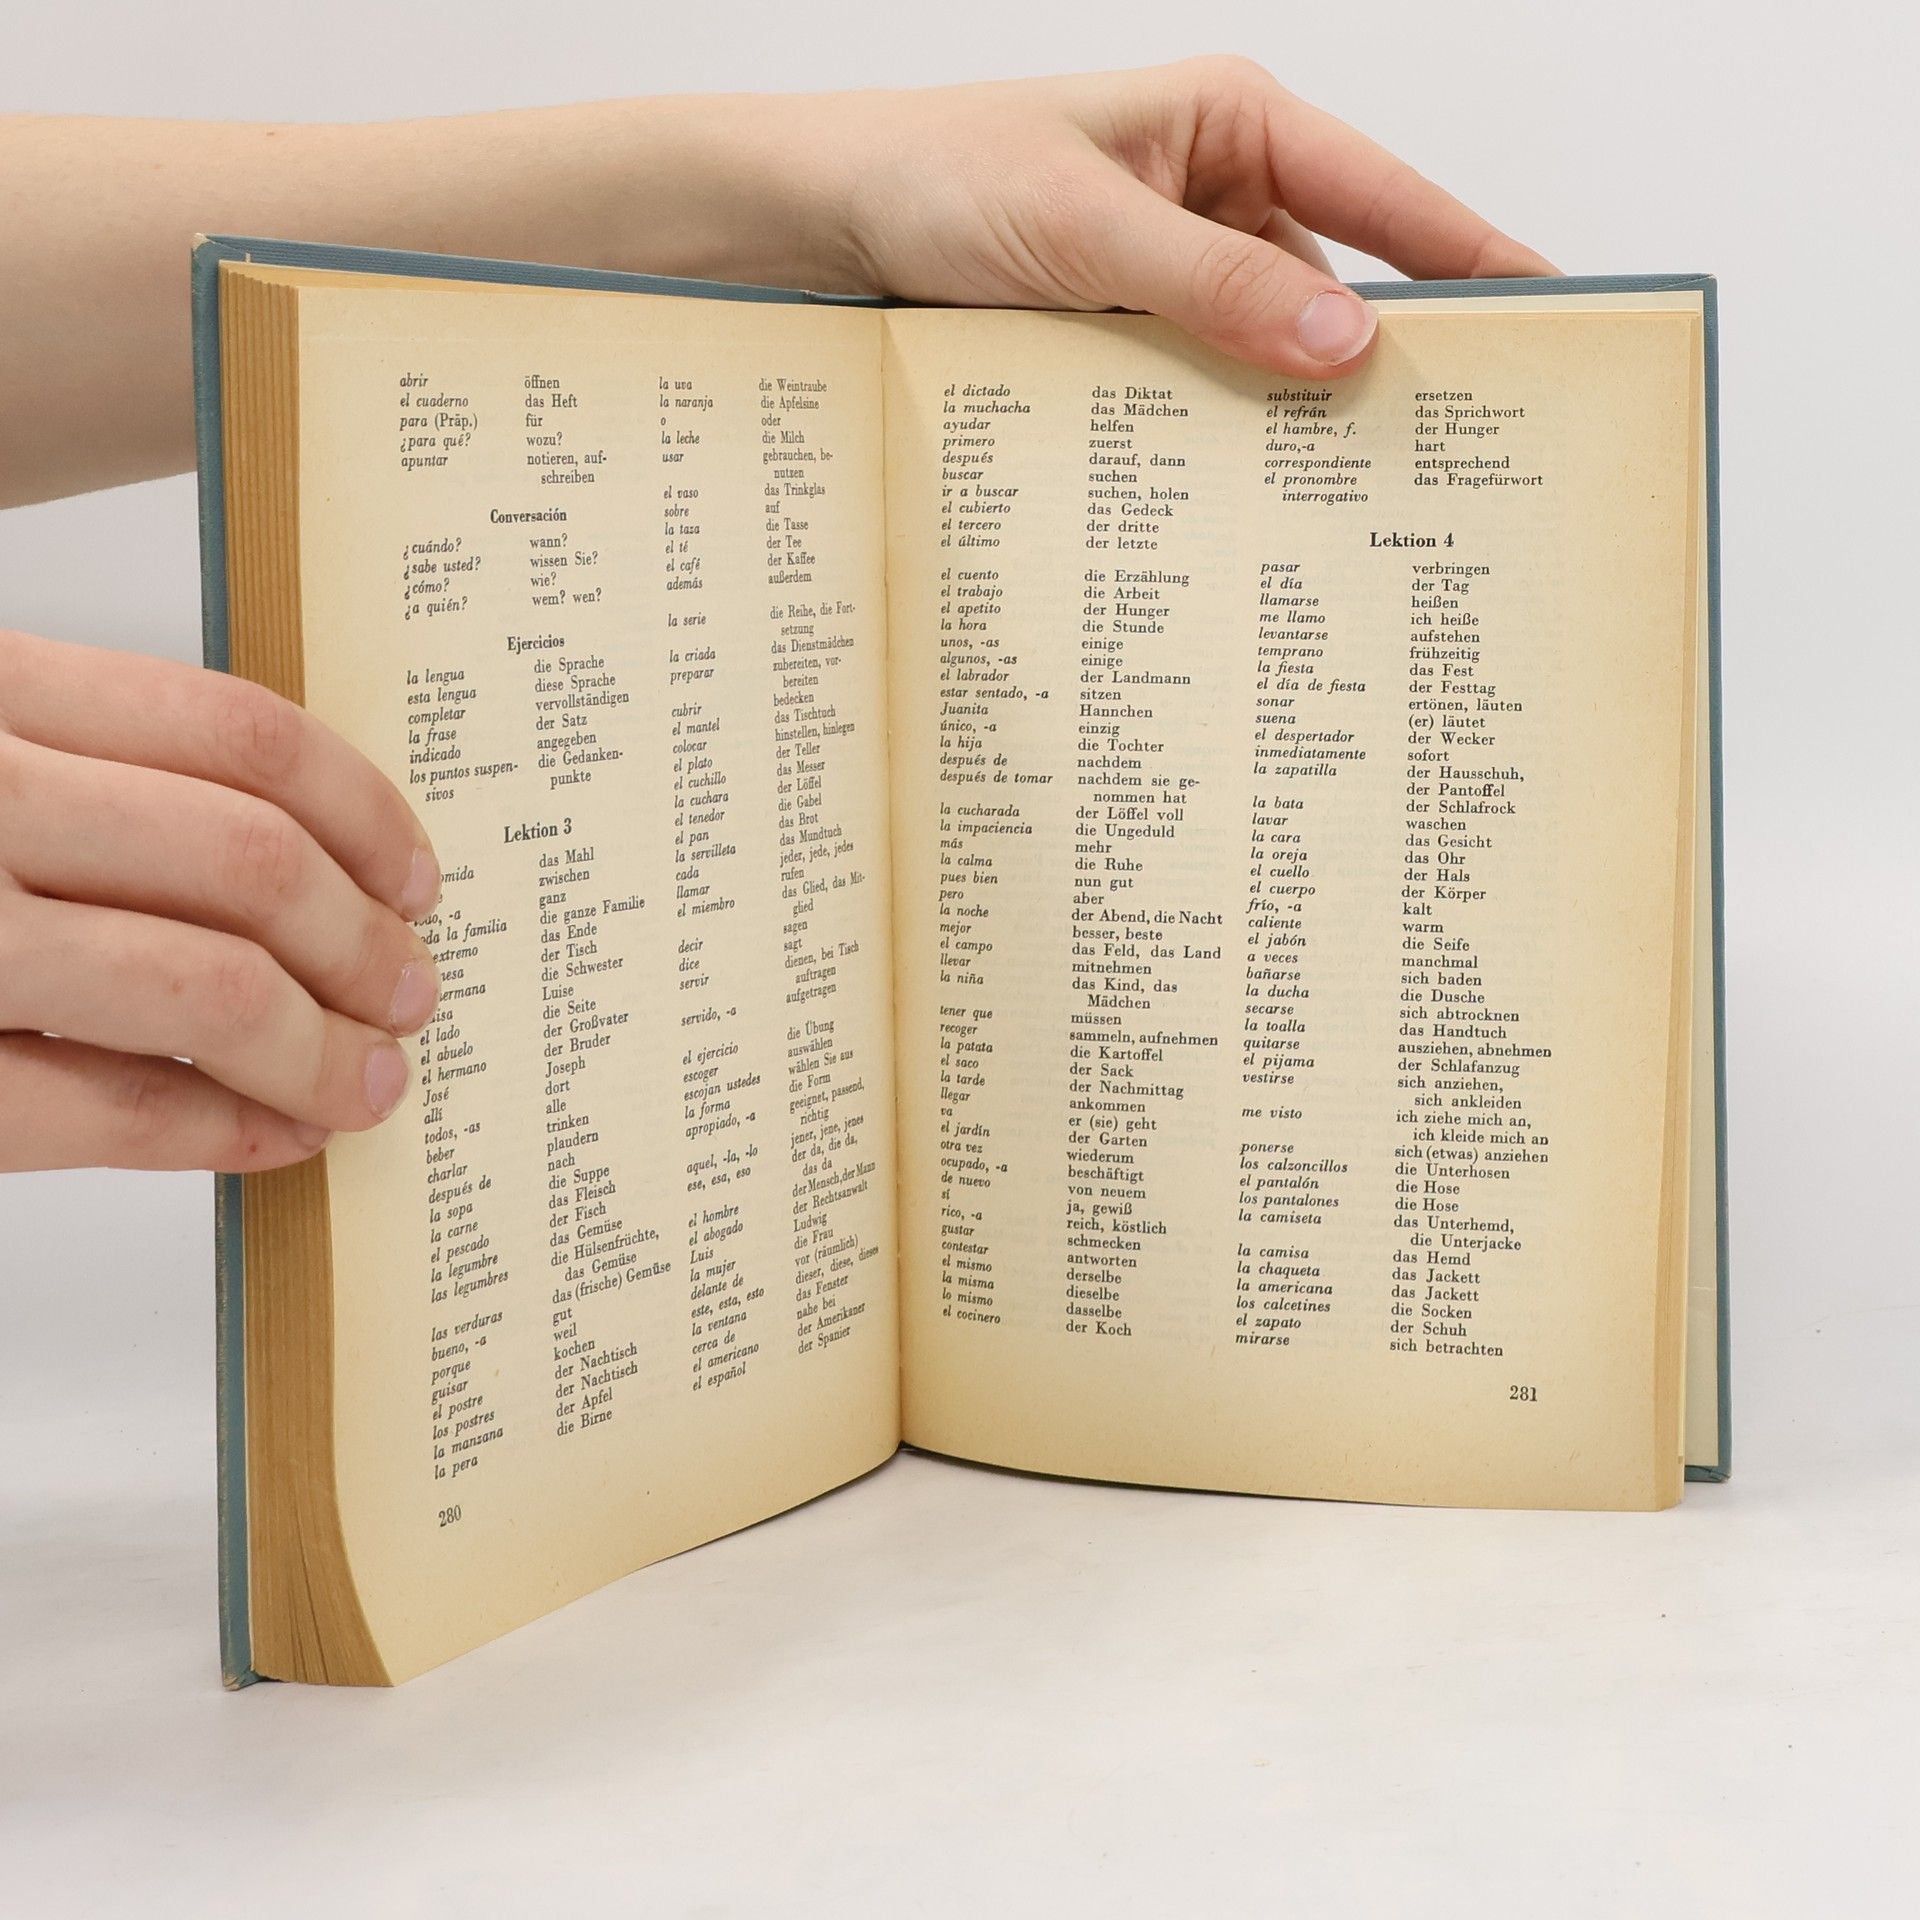 abrir öffnen
el cuaderno das Heft
para (Präp.) für
¿para qué? wozu?
apuntar notieren, auf-
schreiben
Conversación
¿cuándo? wann?
¿sabe usted? wissen Sie?
¿cómo? wie?
¿a quién? wem? wen?
Ejercicios
la lengua die Sprache
esta lengua diese Sprache
completar vervollständigen
la frase der Satz
indicado angegeben
los puntos suspen- die Gedanken-
sivos punkte
Lektion 3
das Mahl
zwischen
-a ganz
la familia die ganze Familie
extremo das Ende
der Tisch
die Schwester
Luise
el lado die Seite
el abuelo der Großvater
el hermano der Bruder
José Joseph
allí dort
todos, -as alle
beber trinken
charlar plaudern
después de nach
la sopa die Suppe
la carne das Fleisch
el pescado der Fisch
la legumbre das Gemüse
las legumbres die Hülsenfrüchte,
das Gemüse
las verduras das (frische) Gemüse
bueno, -a gut
porque weil
guisar kochen
el postre der Nachtisch
los postres der Nachtisch
la manzana der Apfel
la pera die Birne
280
la uva die Weintraube
la naranja die Apfelsine
o oder
la leche die Milch
usar gebrauchen, be-
nutzen
el vaso das Trinkglas
sobre auf
la taza die Tasse
el té der Tee
el café der Kaffee
además außerdem
la serie die Reihe, die Fort-
setzung
la criada das Dienstmädchen
preparar zubereiten, vor-
bereiten
cubrir bedecken
el mantel das Tischtuch
colocar hinstellen, hinlegen
el plato der Teller
el cuchillo das Messer
la cuchara der Löffel
el tenedor die Gabel
el pan das Brot
la servilleta das Mundtuch
cada jeder, jede, jedes
llamar rufen
el miembro das Glied, das Mit-
glied
decir sagen
dice sagt
servir dienen, bei Tisch
auftragen
servido, -a aufgetragen
el ejercicio die Übung
escoger auswählen
escojan ustedes wählen Sie aus
la forma die Form
apropiado, -a geeignet, passend,
richtig
aquel, -la, -lo jener, jene, jenes
ese, esa, eso der da, die da,
das da
el hombre der Mensch, der Mann
el abogado der Rechtsanwalt
Luis Ludwig
la mujer die Frau
delante de vor (räumlich)
este, esta, esto dieser, diese, dieses
la ventana das Fenster
cerca de nahe bei
el americano der Amerikaner
el español der Spanier
el dictado das Diktat
la muchacha das Mädchen
ayudar helfen
primero zuerst
después darauf, dann
buscar suchen
ir a buscar suchen, holen
el cubierto das Gedeck
el tercero der dritte
el último der letzte
el cuento die Erzählung
el trabajo die Arbeit
el apetito der Hunger
la hora die Stunde
unos, -as einige
algunos, -as einige
el labrador der Landmann
estar sentado, -a sitzen
Juanita Hannchen
único, -a einzig
la hija die Tochter
después de nachdem
después de tomar nachdem sie ge-
nommen hat
la cucharada der Löffel voll
la impaciencia die Ungeduld
más mehr
la calma die Ruhe
pues bien nun gut
pero aber
la noche der Abend, die Nacht
mejor besser, beste
el campo das Feld, das Land
llevar mitnehmen
la niña das Kind, das
Mädchen
tener que müssen
recoger sammeln, aufnehmen
la patata die Kartoffel
el saco der Sack
la tarde der Nachmittag
llegar ankommen
va er (sie) geht
el jardín der Garten
otra vez wiederum
ocupado, -a beschäftigt
de nuevo von neuem
sí ja, gewiß
rico, -a reich, köstlich
gustar schmecken
contestar antworten
el mismo derselbe
la misma dieselbe
lo mismo dasselbe
el cocinero der Koch
substituir ersetzen
el refrán das Sprichwort
el hambre, f. der Hunger
duro,-a hart
correspondiente entsprechend
el pronombre das Fragefürwort
interrogativo
Lektion 4
pasar verbringen
el día der Tag
llamarse heißen
me llamo ich heiße
levantarse aufstehen
temprano frühzeitig
la fiesta das Fest
el día de fiesta der Festtag
sonar ertönen, läuten
suena (er) läutet
el despertador der Wecker
inmediatamente sofort
la zapatilla der Hausschuh,
der Pantoffel
la bata der Schlafrock
lavar waschen
la cara das Gesicht
la oreja das Ohr
el cuello der Hals
el cuerpo der Körper
frío, -a kalt
caliente warm
el jabón die Seife
a veces manchmal
bañarse sich baden
la ducha die Dusche
secarse sich abtrocknen
la toalla das Handtuch
quitarse ausziehen, abnehmen
el pijama der Schlafanzug
vestirse sich anziehen,
sich ankleiden
me visto ich ziehe mich an,
ich kleide mich an
ponerse sich (etwas) anziehen
los calzoncillos die Unterhosen
el pantalón die Hose
los pantalones die Hose
la camiseta das Unterhemd,
die Unterjacke
la camisa das Hemd
la chaqueta das Jackett
la americana das Jackett
los calcetines die Socken
el zapato der Schuh
mirarse sich betrachten
281